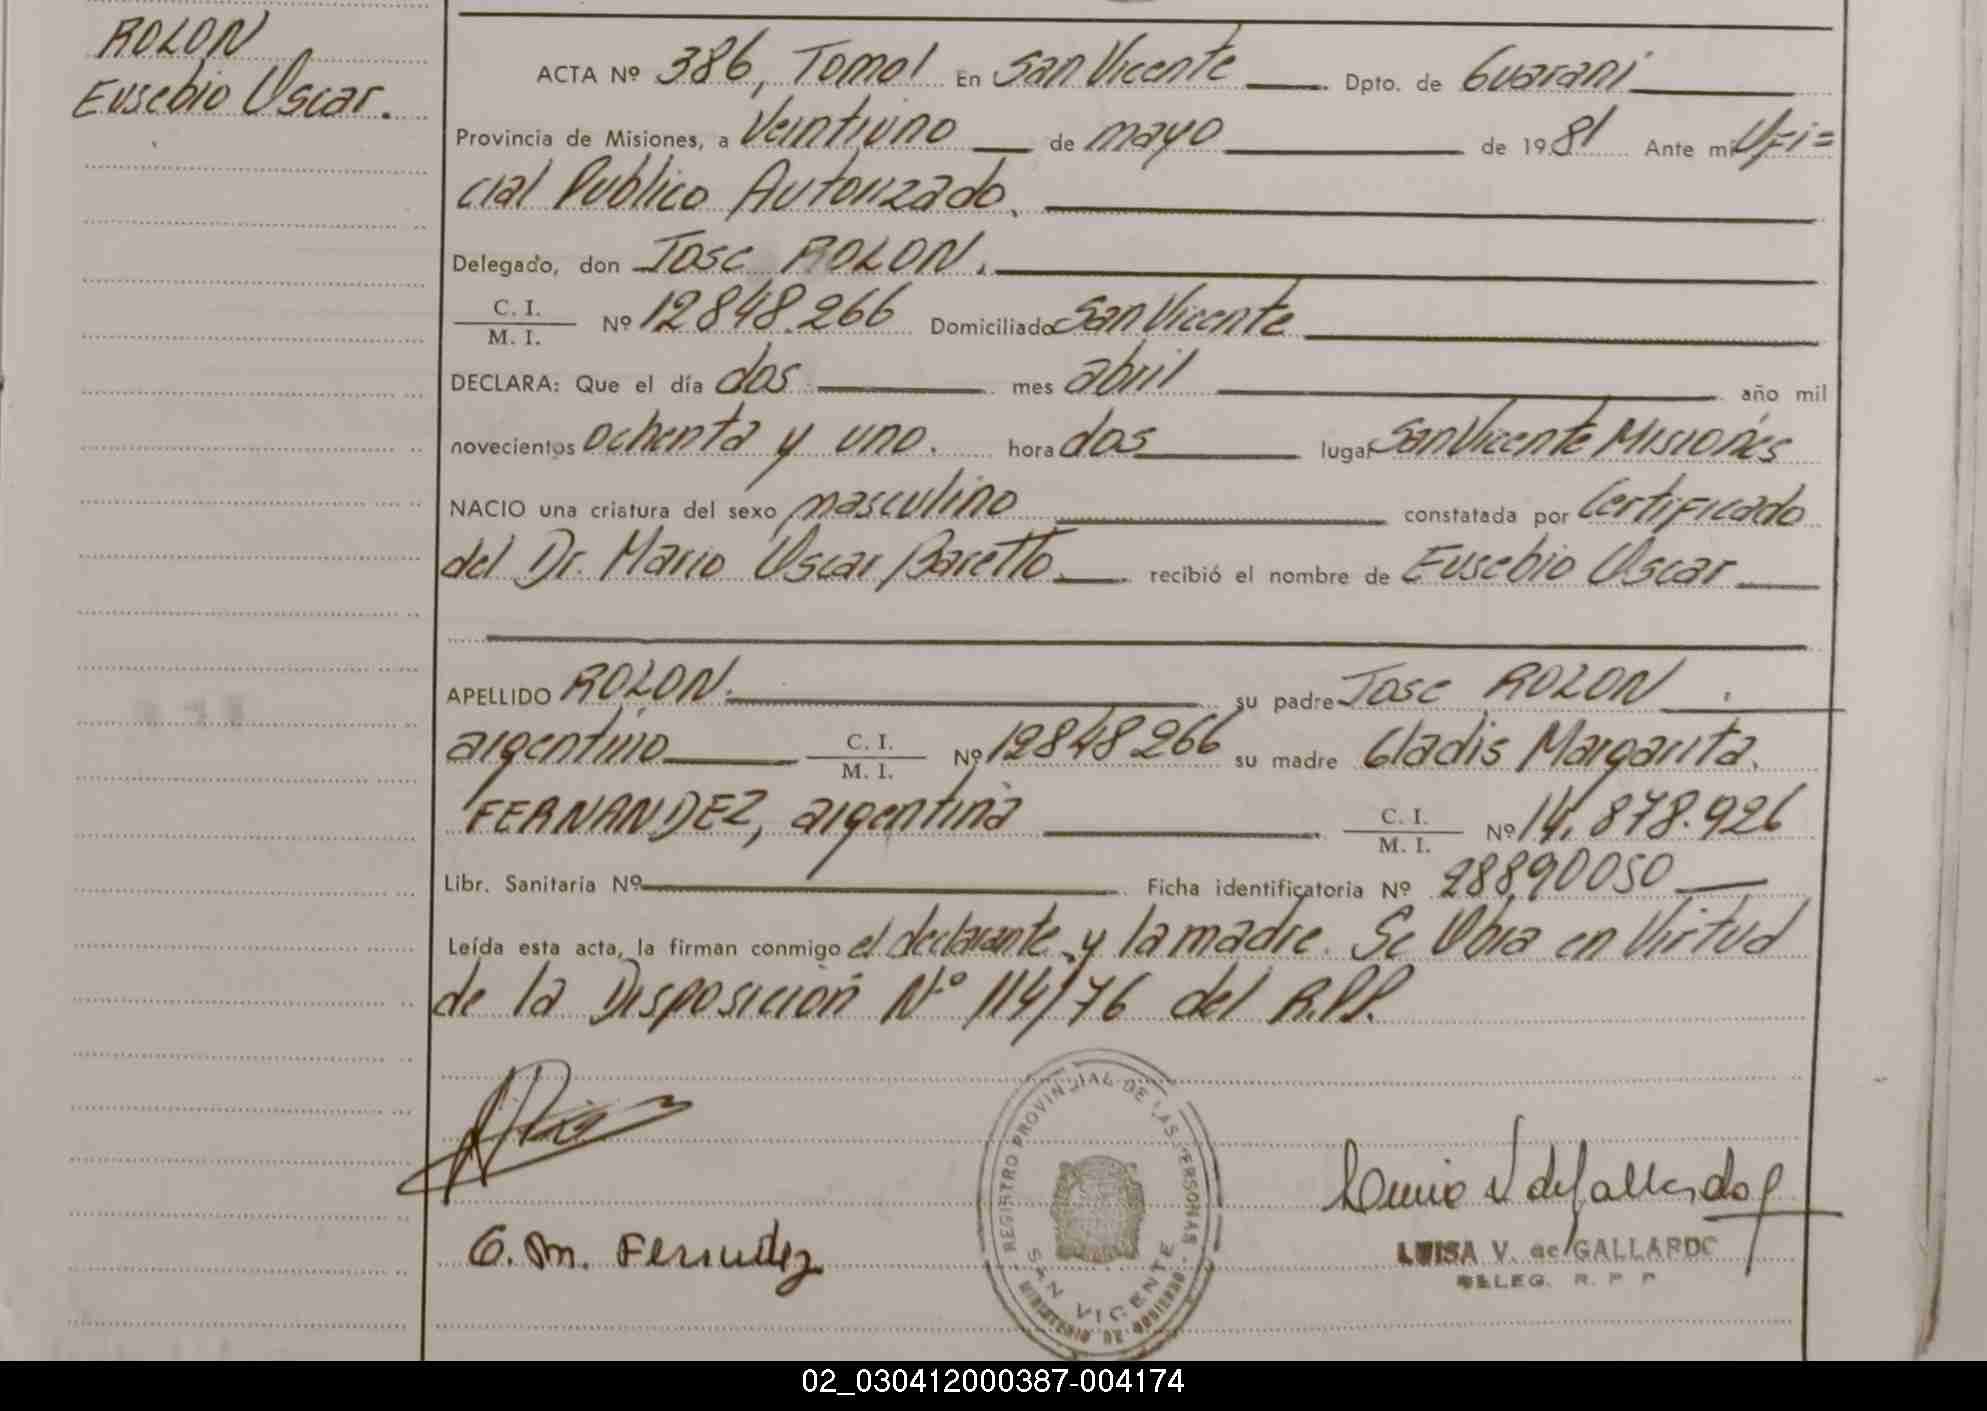 ROLON
Eusebio Oscar.
ACTA Nº 386, Tomo I En San Vicente Dpto. de Guarani
Provincia de Misiones, a Veintiuno de mayo de 1981 Ante mi Ofi=
cial Publico Autorizado.
Delegado, don Jose ROLON.
C. I.
M. I. Nº 12848.266 Domiciliado San Vicente
DECLARA: Que el día dos mes abril año mil
novecientos ochenta y uno. hora dos lugar San Vicente Misiones
NACIO una criatura del sexo masculino constatada por Certificado
del Dr. Mario Oscar Baretto recibió el nombre de Eusebio Oscar
APELLIDO ROLON. su padre Jose ROLON
argentino C. I.
M. I. Nº 12848266 su madre Gladis Margarita
FERNANDEZ, argentina C. I.
M. I. Nº 14.878.926
Libr. Sanitaria Nº Ficha identificatoria Nº 28890050
Leída esta acta, la firman conmigo el declarante y la madre. Se Obra en Virtud
de la Disposición Nº 114/76 del R.P.P.
REGISTRO PROVINCIAL DE LAS PERSONAS
SAN VICENTE
MINISTERIO DE GOBIERNO
G. M. Fernandez
Luisa V de Gallardo
LUISA V. de GALLARDO
DELEG. R. P. P.
02_030412000387-004174